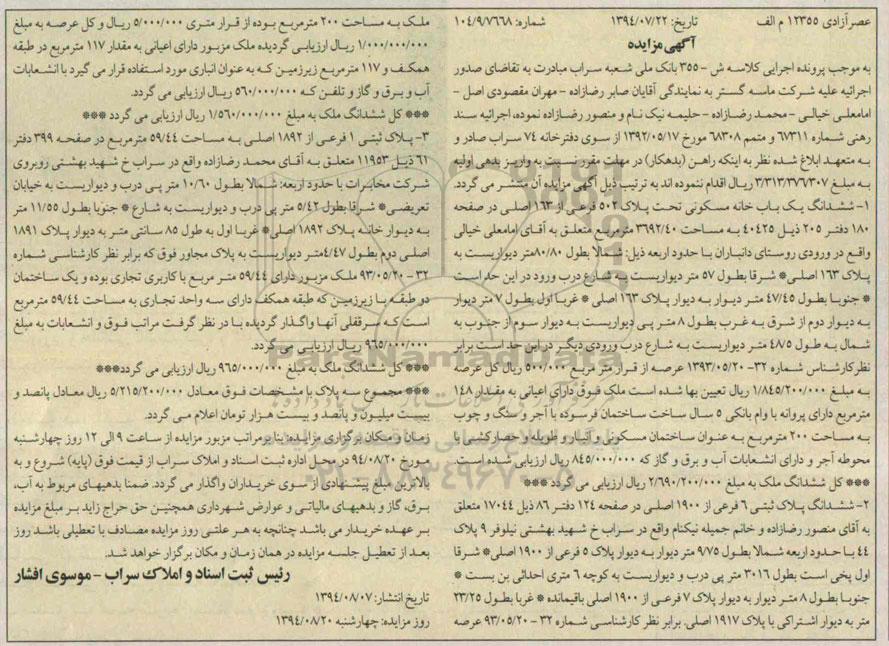 عصرآزادی ۱۲۳۵۵ م الف تاریخ: ۱۳۹۴/۰۷/۲۲ شماره: ۱۰۴/۹/۷۶۶۸
آگهی مزایده
به موجب پرونده اجرایی کلاسه ش - ۳۵۵ بانک ملی شعبه سراب مبادرت به تقاضای صدور
اجرائیه علیه شرکت ماسه گستر به نمایندگی آقایان صابر رضازاده - مهران مقصودی اصل -
امامعلی خیالی - محمد رضازاده - حلیمه نیک نام و منصور رضازاده نموده، اجرائیه سند
رهنی شماره ۶۷۳۱۱ و متمم ۶۸۳۰۸ مورخ ۱۳۹۲/۰۵/۱۷ از سوی دفترخانه ۷۴ سراب صادر و
به متعهد ابلاغ شده نظر به اینکه راهن (بدهکار) در مهلت مقرر نسبت به واریز بدهی اولیه
به مبلغ ۳/۳۱۳/۳۷۶/۳۰۷ ریال اقدام ننموده اند به ترتیب ذیل آگهی مزایده آن منتشر می گردد.
۱- ششدانگ یک باب خانه مسکونی تحت پلاک ۵۰۲ فرعی از ۱۶۳ اصلی در صفحه
۱۸۰ دفتر ۲۰۵ ذیل ۴۰۴۲۵ به مساحت ۳۶۹۲/۴۰ مترمربع متعلق به آقای امامعلی خیالی
واقع در ورودی روستای دانباران با حدود اربعه ذیل: شمالا بطول ۸۰/۸۰ متر دیواریست به
پلاک ۱۶۳ اصلی* شرقا بطول ۵۷ متر دیواریست به شارع درب ورود در این حد است
* جنوبا بطول ۴۷/۴۵ متر دیوار به دیوار پلاک ۱۶۳ اصلی * غربا اول بطول ۷ متر دیوار
به دیوار دوم از شرق به غرب بطول ۸ متر پی دیواریست به دیوار سوم از جنوب به
شمال به طول ۴۸/۵ متر دیواریست به شارع درب ورودی دیگر در این حد است برابر
نظر کارشناس شماره ۳۲- ۱۳۹۳/۰۵/۲۰ عرصه از قرار متر مربع ۵۰۰/۰۰۰ ریال کل عرصه
به مبلغ ۱/۸۴۵/۲۰۰/۰۰۰ ریال تعیین بها شده است ملک فوق دارای اعیانی به مقدار ۱۴۸
مترمربع دارای پروانه با وام بانکی ۵ سال ساخت ساختمان فرسوده با آجر و سنگ و چوب
به مساحت ۲۰۰ مترمربع به عنوان ساختمان مسکونی و انبار و طویله و حصارکشی با
محوطه آجر و دارای انشعابات آب و برق و گاز که ۸۴۵/۰۰۰/۰۰۰ ریال ارزیابی شده است.
*** کل ششدانگ ملک به مبلغ ۲/۶۹۰/۲۰۰/۰۰۰ ریال ارزیابی می گردد ***
۲- ششدانگ پلاک ثبتی ۶ فرعی از ۱۹۰۰ اصلی در صفحه ۱۲۴ دفتر ۸۶ ذیل ۱۷۰۴۴ متعلق
به آقای منصور رضازاده و خانم جمیله نیکنام واقع در سراب خ شهید بهشتی نیلوفر ۹ پلاک
۴۴ با حدود اربعه شمالا بطول ۹/۷۵ متر دیوار به دیوار پلاک ۵ فرعی از ۱۹۰۰ اصلی* شرقا
اول پخی است بطول ۳۰۱۶ متر پی درب و دیواریست به کوچه ۶ متری احداثی بن بست *
جنوبا بطول ۸ متر دیوار به دیوار پلاک ۷ فرعی از ۱۹۰۰ اصلی باقیمانده * غربا بطول ۲۳/۲۵
متر به دیوار اشتراکی با پلاک ۱۹۱۷ اصلی. برابر نظر کارشناسی شماره ۳۲ - ۹۳/۰۵/۲۰ عرصه
ملک به مساحت ۲۰۰ مترمربع بوده از قرار متری ۵/۰۰۰/۰۰۰ ریال و کل عرصه به مبلغ
۱/۰۰۰/۰۰۰/۰۰۰ ریال ارزیابی گردیده ملک مزبور دارای اعیانی به مقدار ۱۱۷ مترمربع در طبقه
همکف و ۱۱۷ مترمربع زیرزمین که به عنوان انباری مورد استفاده قرار می گیرد با انشعابات
آب و برق و گاز و تلفن که ۵۶۰/۰۰۰/۰۰۰ ریال ارزیابی می گردد.
*** کل ششدانگ ملک به مبلغ ۱/۵۶۰/۰۰۰/۰۰۰ ریال ارزیابی می گردد ***
۳- پلاک ثبتی ۱ فرعی از ۱۸۹۲ اصلی به مساحت ۵۹/۴۴ مترمربع در صفحه ۳۹۹ دفتر
۶۱ ذیل ۱۱۹۵۳ متعلق به آقای محمد رضازاده واقع در سراب خ شهید بهشتی روبروی
شرکت مخابرات با حدود اربعه: شمالا بطول ۱۰/۶۰ متر پی درب و دیواریست به خیابان
تعریضی* شرقا بطول ۵/۴۲ متر پی درب و دیواریست به شارع * جنوبا بطول ۱۱/۵۵ متر
به دیوار خانه پلاک ۱۸۹۲ اصلی* غربا اول به طول ۸۵ سانتی متر به دیوار پلاک ۱۸۹۱
اصلی دوم بطول ۴/۴۷متر دیواریست به پلاک مجاور فوق که برابر نظر کارشناسی شماره
۳۲ - ۹۳/۰۵/۲۰ ملک مزبور دارای ۵۹/۴۴ متر مربع با کاربری تجاری بوده و یک ساختمان
دو طبقه با زیرزمین که طبقه همکف دارای سه واحد تجاری به مساحت ۵۹/۴۴ مترمربع
است که سرقفلی آنها واگذار گردیده با در نظر گرفت مراتب فوق و انشعابات به مبلغ
۹۶۵/۰۰۰/۰۰۰ ریال ارزیابی می گردد.
*** کل ششدانگ ملک به مبلغ ۹۶۵/۰۰۰/۰۰۰ ریال ارزیابی می گردد***
*** مجموع سه پلاک با مشخصات فوق معادل ۵/۲۱۵/۲۰۰/۰۰۰ ریال معادل پانصد و
بیست میلیون و پانصد و بیست هزار تومان اعلام می گردد.
زمان و مکان برگزاری مزایده: بنابر مراتب مزبور مزایده از ساعت ۹ الی ۱۲ روز چهارشنبه
مورخ ۹۴/۰۸/۲۰ در محل اداره ثبت اسناد و املاک سراب از قیمت فوق (پایه) شروع و به
بالاترین مبلغ پیشنهادی از سوی خریداران واگذار می گردد. ضمنا بدهیهای مربوط به آب،
برق، گاز و بدهیهای مالیاتی و عوارض شهرداری همچنین حق حراج زاید بر مبلغ مزایده
بر عهده خریدار می باشد چنانچه به هر علتی روز مزایده مصادف با تعطیلی باشد روز
بعد از تعطیل جلسه مزایده در همان زمان و مکان برگزار خواهد شد.
رئیس ثبت اسناد و املاک سراب - موسوی افشار
تاریخ انتشار: ۱۳۹۴/۰۸/۰۷
روز مزایده: چهارشنبه ۱۳۹۴/۰۸/۲۰
ParsNamadData